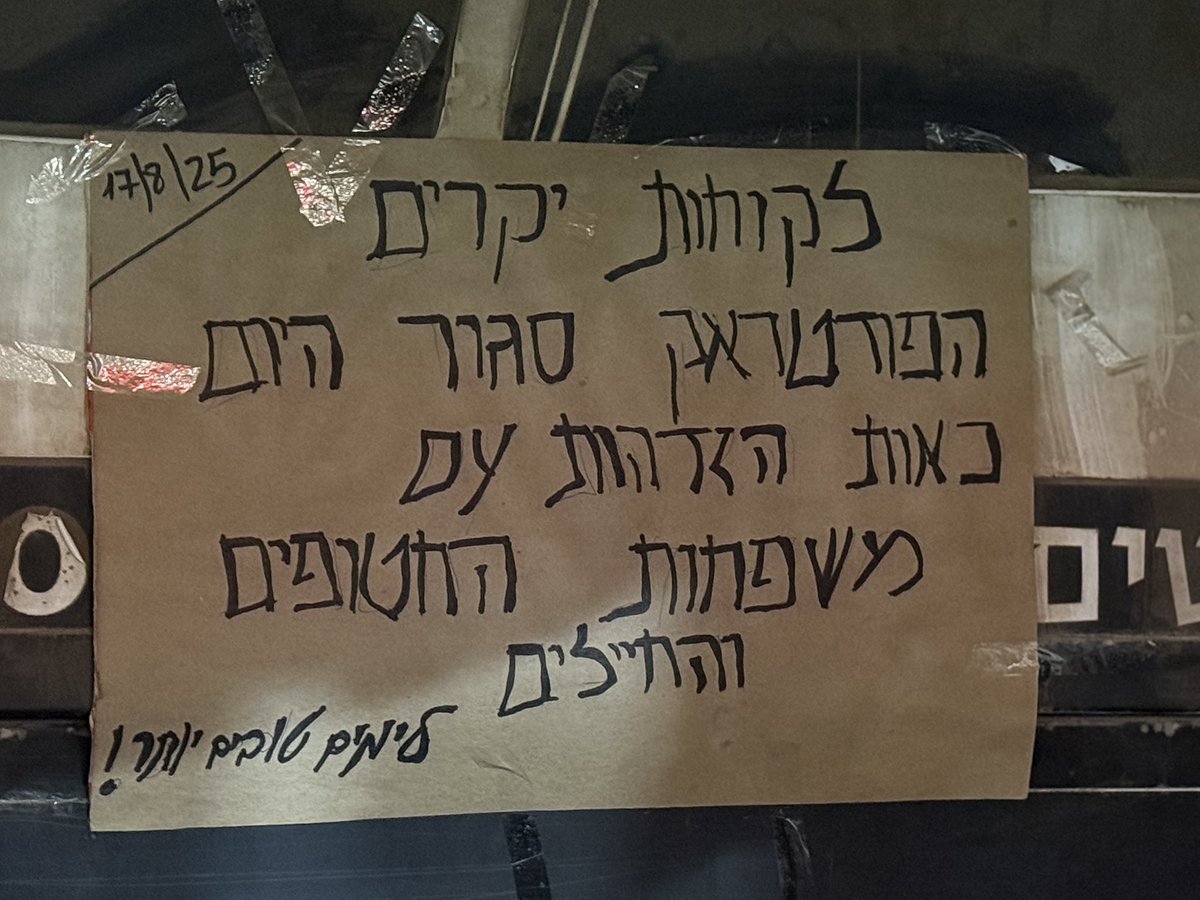 17/8/25
לקוחות יקרים
הפורטראק סגור היום
כאות הזדהות עם
משפחות החטופים
והחיילים
לימים טובים יותר!